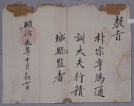 敎旨
朴宗章爲通
訓大夫行積
城縣監者
順治九年十月初七日